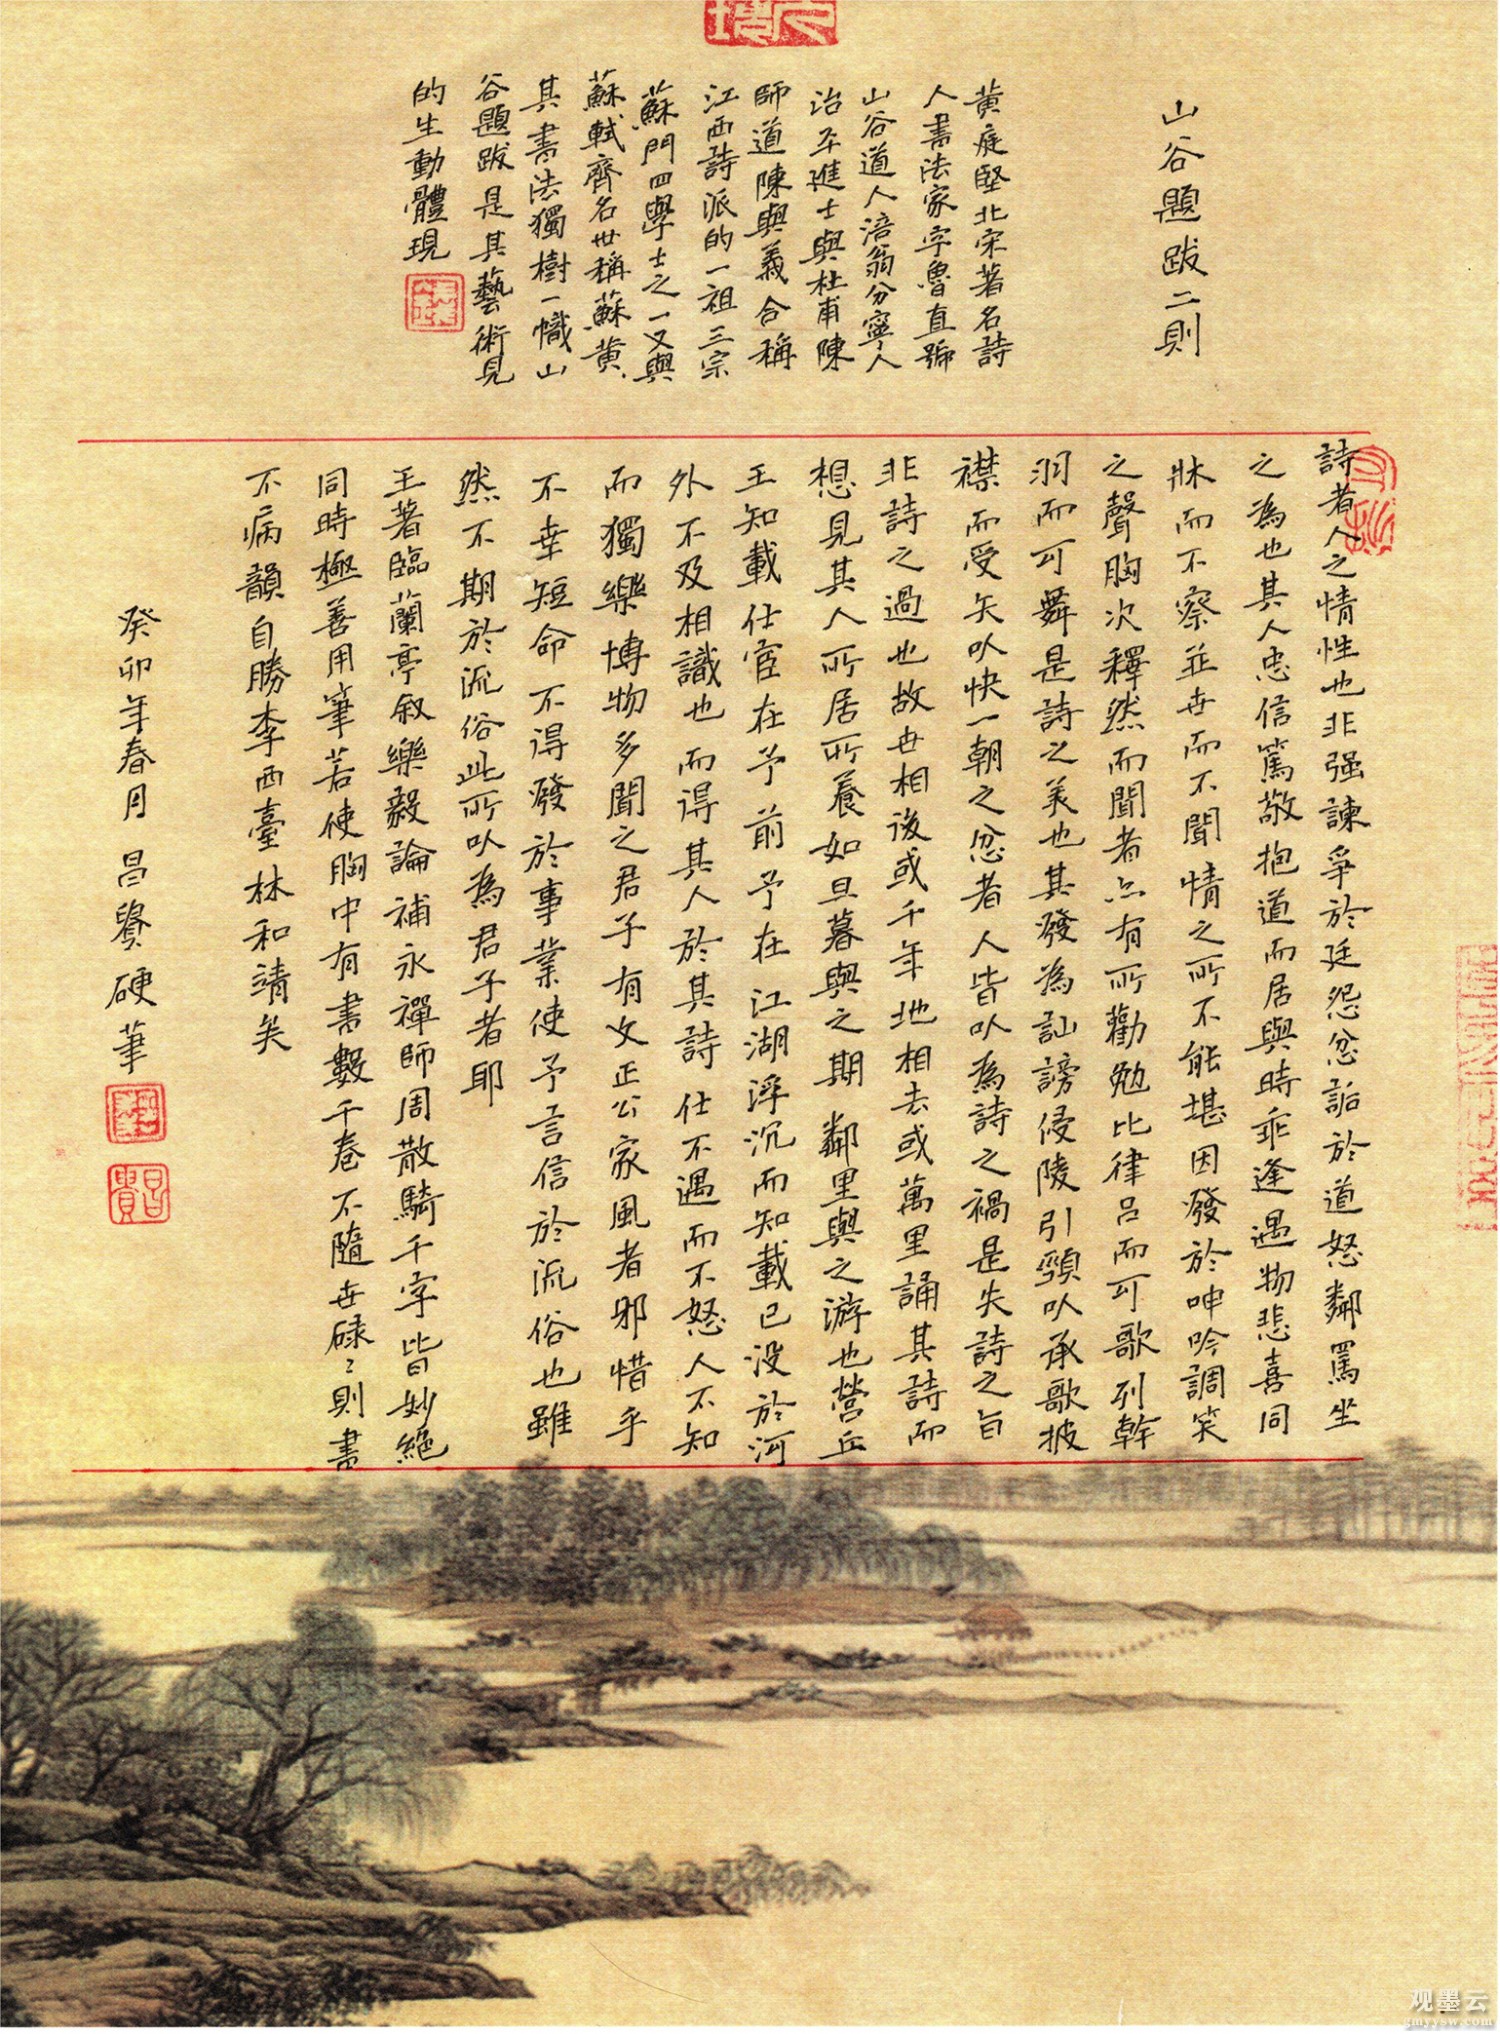 山谷題跋二則
黄庭堅北宋著名詩
人書法家字魯直號
山谷道人涪翁分寧人
治平進士與杜甫陳
師道陳與義合稱
江西詩派的一祖三宗
蘇門四學士之一又與
蘇軾齊名世稱蘇黄
其書法獨樹一幟山
谷題跋是其藝術見
的生動體現
詩者人之情性也非强諫爭於廷怨忿詬於道怒鄰罵坐
之為也其人忠信篤敬抱道而居與時乖逢遇物悲喜同
牀而不察並世而不聞情之所不能堪因發於呻吟調笑
之聲胸次釋然而聞者亦有所勸勉比律吕而可歌列幹
羽而可舞是詩之美也其發為訕謗侵陵引頸以承歌披
襟而受矢以快一朝之忿者人皆以為詩之禍是失詩之旨
非詩之過也故世相後或千年地相去或萬里誦其詩而
想見其人所居所養如旦暮與之期 鄰里與之游也營丘
王知載仕宦在予前予在江湖浮沉而知載已没於河
外不及相識也而得其人於其詩仕不遇而不怒人不知
而獨樂博物多聞之君子有文正公家風者邪惜乎
不幸短命不得發於事業使予言信於流俗也雖
然不期於流俗此所以為君子者耶
王著臨蘭亭叙樂毅論補永禪師周散騎千字皆妙絶
同時極善用筆若使胸中有書數千卷不隨世碌々則書
不病韻自勝李西臺林和靖矣
癸卯年春月 昌贇硬筆
观墨云
gmyysw.com